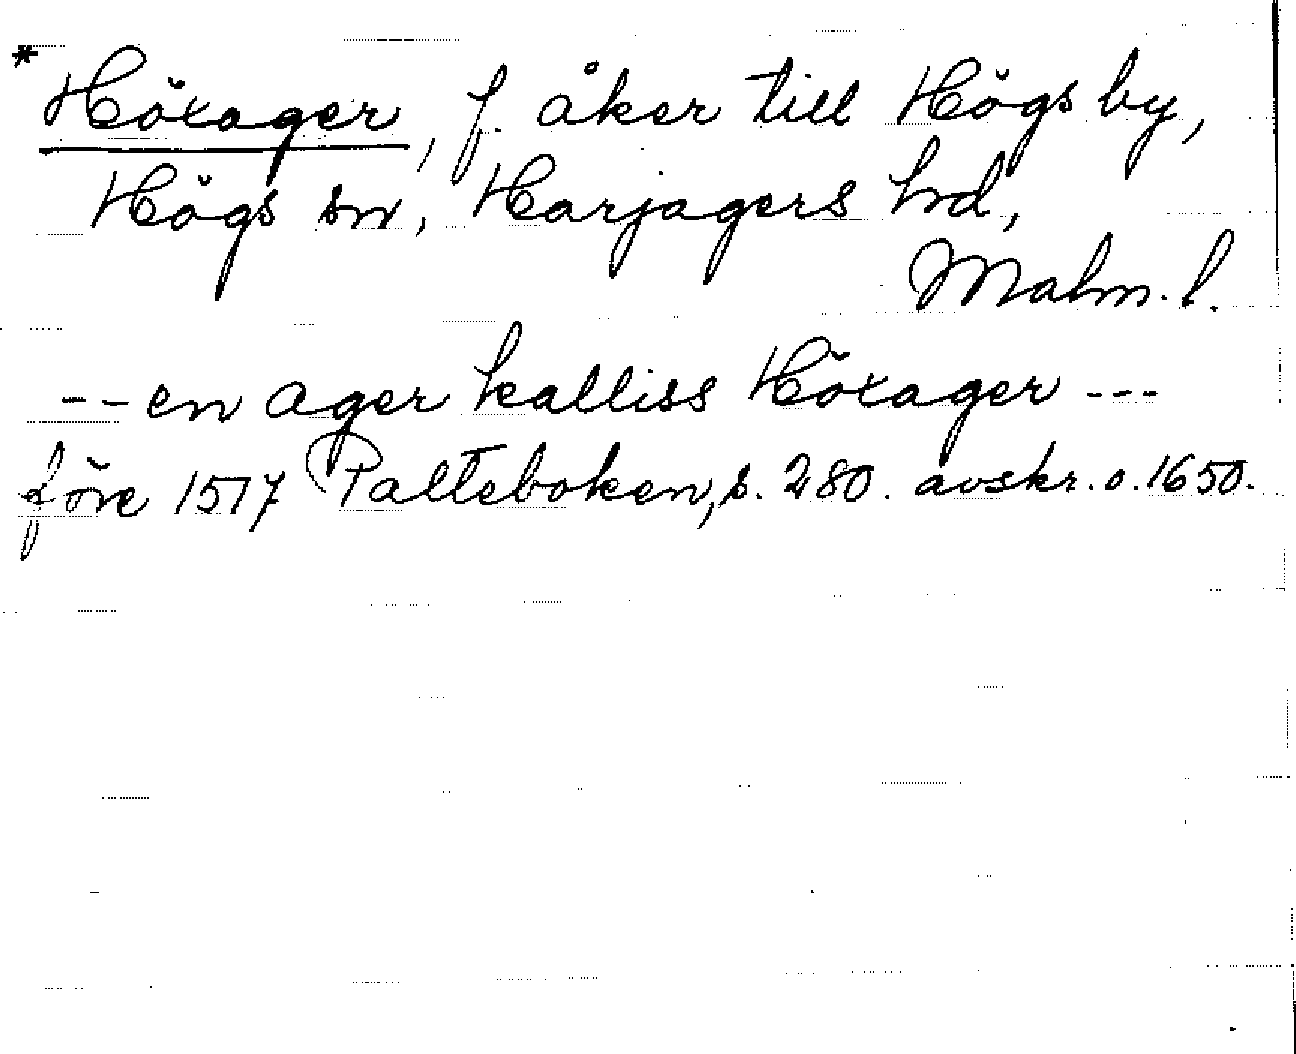 * Höxager, f. åker till Högs by,
Högs sn, Harjagers hd,
Malm. l.
-- en ager kalliss Höxager ---
före 1517 Palteboken, s. 280. avskr. o. 1650.